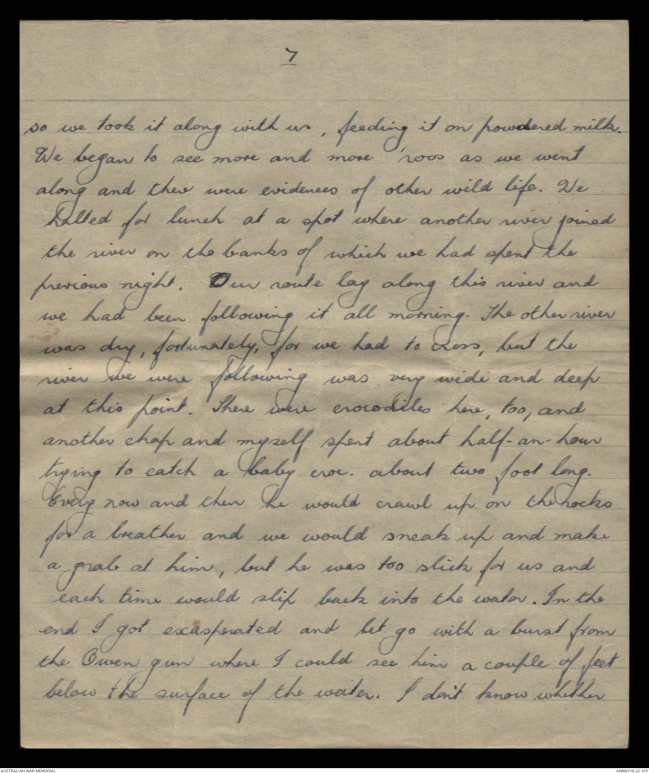 7
so we took it along with us, feeding it on powdered milk.
We began to see more and more 'roos as we went
along and there were evidences of other wild life. We
halted for lunch at a spot where another river joined
the river on the banks of which we had spent the
previous night. Our route lay along this river and
we had been following it all morning. The other river
was dry, fortunately, for we had to cross, but the
river we were following was very wide and deep
at this point. There were crocodiles here, too, and
another chap and myself spent about half-an-hour
trying to catch a baby croc. about two foot long.
Every now and then he would crawl up on the rocks
for a breather and we would sneak up and make
a grab at him, but he was too slick for us and
each time would slip back into the water. In the
end I got exasperated and let go with a burst from
the Owen gun where I could see him a couple of feet
below the surface of the water. I don't know whether
AUSTRALIAN WAR MEMORIAL